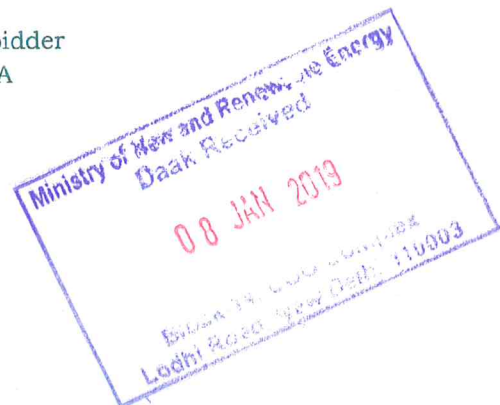 bidder
A
Ministry of New and Renewable Energy
Daak Received
08 JAN 2019
Block 14, CGO Complex
Lodhi Road, New Delhi 110003